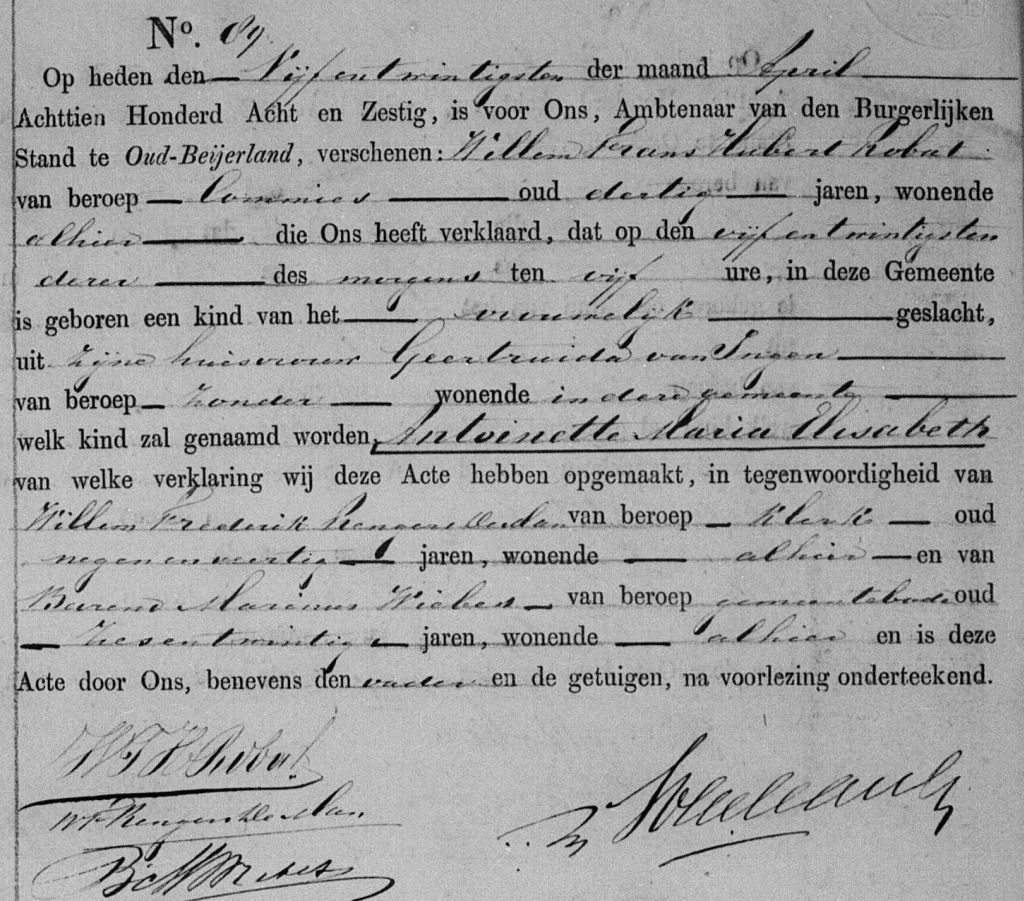 No. 89.
Op heden den Vijf en twintigsten der maand April
Achttien Honderd Acht en Zestig, is voor Ons, Ambtenaar van den Burgerlijken
Stand te Oud-Beijerland, verschenen: Willem Frans Hubert Robat
van beroep Commies oud dertig jaren, wonende
alhier die Ons heeft verklaard, dat op den vijf en twintigsten
dezer des morgens ten vijf ure, in deze Gemeente
is geboren een kind van het vrouwelijk geslacht,
uit zijne huisvrouw Geertruida van Ingen
van beroep zonder wonende in deze gemeente
welk kind zal genaamd worden, Antoinette Maria Elisabeth
van welke verklaring wij deze Acte hebben opgemaakt, in tegenwoordigheid van
Willem Frederik Rengers de Man van beroep klerk oud
negen en veertig jaren, wonende alhier en van
Barend Marinus Wiebes van beroep gemeentebode oud
zes en twintig jaren, wonende alhier en is deze
Acte door Ons, benevens den vader en de getuigen, na voorlezing onderteekend.
WFH Robat
WF Rengers de Man